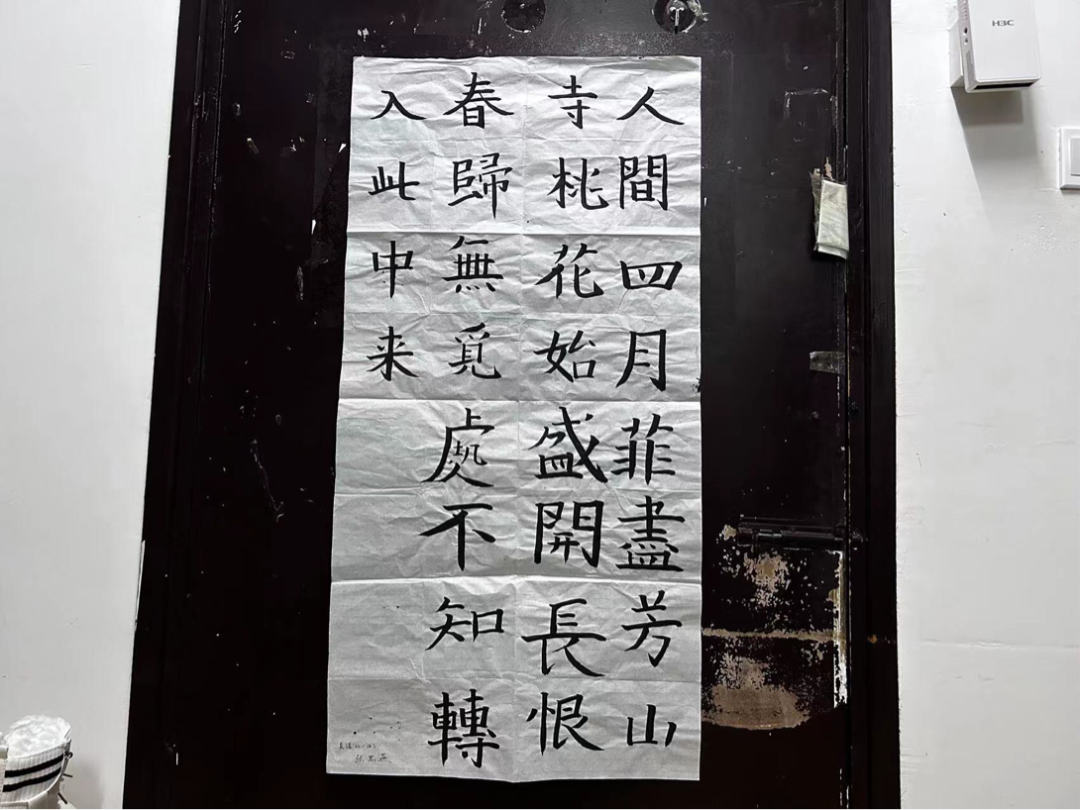 人間四月菲盡芳山
寺桃花始盛開長恨
春歸無覓處不知轉
入此中来
H3C